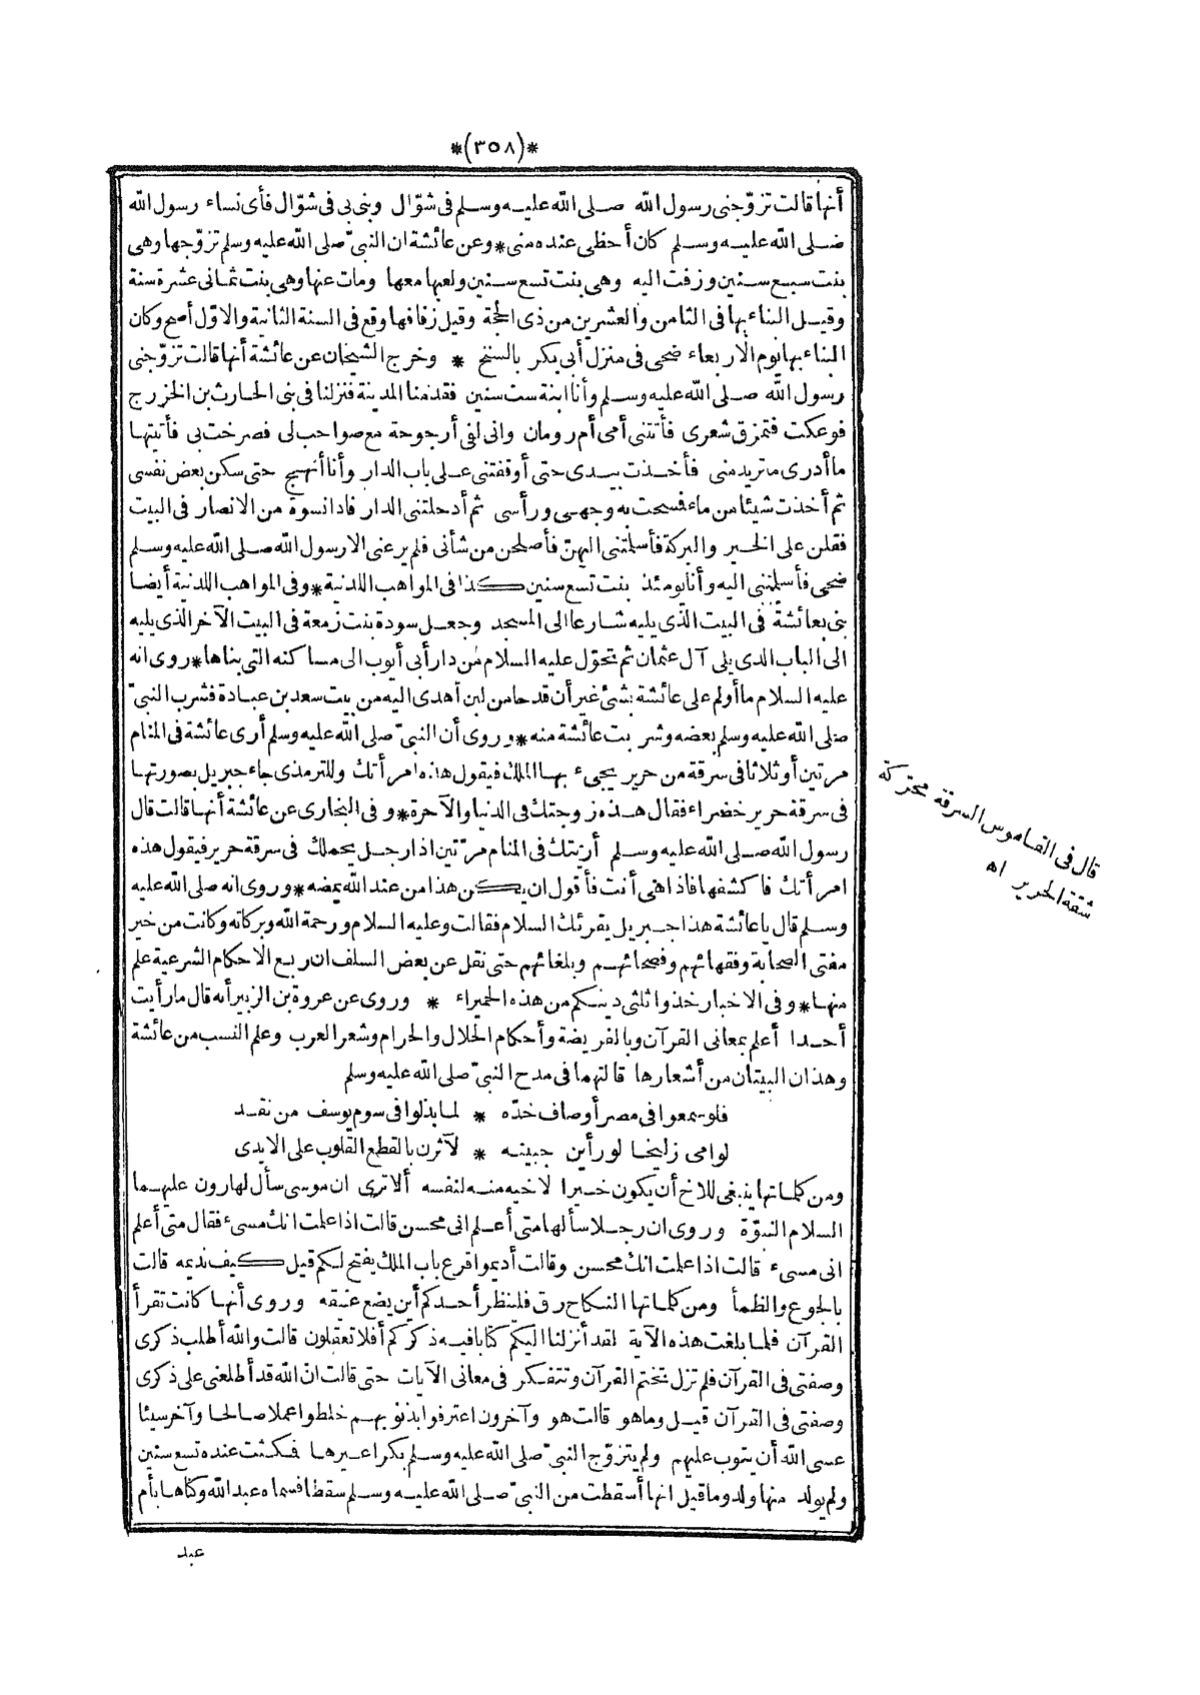 *(٣٥٨)*
أنها قالت تزوّجنى رسول الله صلى الله عليه وسلم فى شوّال وبنى بى فى شوّال فأى نساء رسول الله
صلى الله عليه وسلم كان أحظى عنده منى * وعن عائشة ان النبىّ صلى الله عليه وسلم تزوّجها وهى
بنت سبع سنين وزفت اليه وهى بنت تسع سنين ولعبها معها ومات عنها وهى بنت ثمانى عشرة سنة
وقيل البناء بها فى الثامن والعشرين من ذى الحجة وقيل زفافها وقع فى السنة الثانية والاوّل أصح وكان
البناء بها يوم الاربعاء ضحى فى منزل أبى بكر بالسنح * وخرج الشيخان عن عائشة أنها قالت تزوّجنى
رسول الله صلى الله عليه وسلم وأنا ابنة ست سنين فقدمنا المدينة فنزلنا فى بنى الحارث بن الخزرج
فوعكت فتمزق شعرى فأتتنى أمى أم رومان وانى لفى أرجوحة مع صواحب لى فصرخت بى فأتيتها
ما أدرى ما تريد منى فأخذت بيدى حتى أوقفتنى على باب الدار وأنا أنهج حتى سكن بعض نفسى
ثم أخذت شيئا من ماء فمسحت به وجهى ورأسى ثم أدخلتنى الدار فاذا نسوة من الانصار فى البيت
فقلن على الخير والبركة فأسلمتنى اليهنّ فأصلحن من شأنى فلم يرعنى الا رسول الله صلى الله عليه وسلم
ضحى فأسلمتنى اليه وأنا يومئذ بنت تسع سنين كذا فى المواهب اللدنية * وفى المواهب اللدنية أيضا
بنى بعائشة فى البيت الذى يليه شارعا الى المسجد وجعل سودة بنت زمعة فى البيت الآخر الذى يليه
الى الباب الذى يلى آل عثمان ثم تحوّل عليه السلام من دار أبى أيوب الى مساكنه التى بناها * روى انه
عليه السلام ما أولم على عائشة بشئ غير أن قدحا من لبن أهدى اليه من بيت سعد بن عبادة فشرب النبىّ
صلى الله عليه وسلم بعضه وشربت عائشة منه * وروى أن النبىّ صلى الله عليه وسلم أرى عائشة فى المنام
مرتين أو ثلاثا فى سرقة من حرير يجىء بها الملك فيقول هذه امرأتك وللترمذى جاء جبريل بصورتها
فى سرقة حرير خضراء فقال هذه زوجتك فى الدنيا والآخرة * وفى البخارى عن عائشة أنها قالت قال
رسول الله صلى الله عليه وسلم أريتك فى المنام مرّتين اذا رجل يحملك فى سرقة حرير فيقول هذه
امرأتك فاكشفها فاذا هى أنت فأقول ان يكن هذا من عند الله يمضه * وروى انه صلى الله عليه
وسلم قال يا عائشة هذا جبريل يقرئك السلام فقالت وعليه السلام ورحمة الله وبركاته وكانت من خير
مفتى الصحابة وفقهائهم وفصحائهم وبلغائهم حتى نقل عن بعض السلف ان ربع الاحكام الشرعية علم
منها * وفى الاخبار خذوا ثلثى دينكم من هذه الحميراء * وروى عن عروة بن الزبير أنه قال ما رأيت
أحدا أعلم بمعانى القرآن وبالفريضة وأحكام الحلال والحرام وشعر العرب وعلم النسب من عائشة
وهذان البيتان من أشعارها قالتهما فى مدح النبىّ صلى الله عليه وسلم
فلو سمعوا فى مصر أوصاف خدّه * لما بذلوا فى سوم يوسف من نقد
لوامى زليخا لو رأين جبينه * لآثرن بالقطع القلوب على الايدى
ومن كلماتها ينبغى للاخ أن يكون خيرا لاخيه منه لنفسه ألا ترى ان موسى سأل لهارون عليهما
السلام النبوّة وروى ان رجلا سألها متى أعلم انى محسن قالت اذا علمت انك مسىء فقال متى أعلم
انى مسىء قالت اذا علمت انك محسن وقالت أديموا قرع باب الملك يفتح لكم قيل كيف نديمه قالت
بالجوع والظمأ ومن كلماتها النكاح رق فلينظر أحدكم أين يضع عتيقه وروى أنها كانت تقرأ
القرآن فلما بلغت هذه الآية لقد أنزلنا اليكم كتابا فيه ذكركم أفلا تعقلون قالت والله أطلب ذكرى
وصفتى فى القرآن فلم تزل تختم القرآن وتتفكر فى معانى الآيات حتى قالت انّ الله قد أطلعنى على ذكرى
وصفتى فى القرآن قيل وما هو قالت هو وآخرون اعترفوا بذنوبهم خلطوا عملا صالحا وآخر سيئا
عسى الله أن يتوب عليهم ولم يتزوّج النبىّ صلى الله عليه وسلم بكرا غيرها فمكثت عنده تسع سنين
ولم يولد منها ولد وما قيل انها أسقطت من النبىّ صلى الله عليه وسلم سقطا فسماه عبد الله وكناها بأم
عبد
قال فى القاموس السرقة محركة
شقة الحرير اه